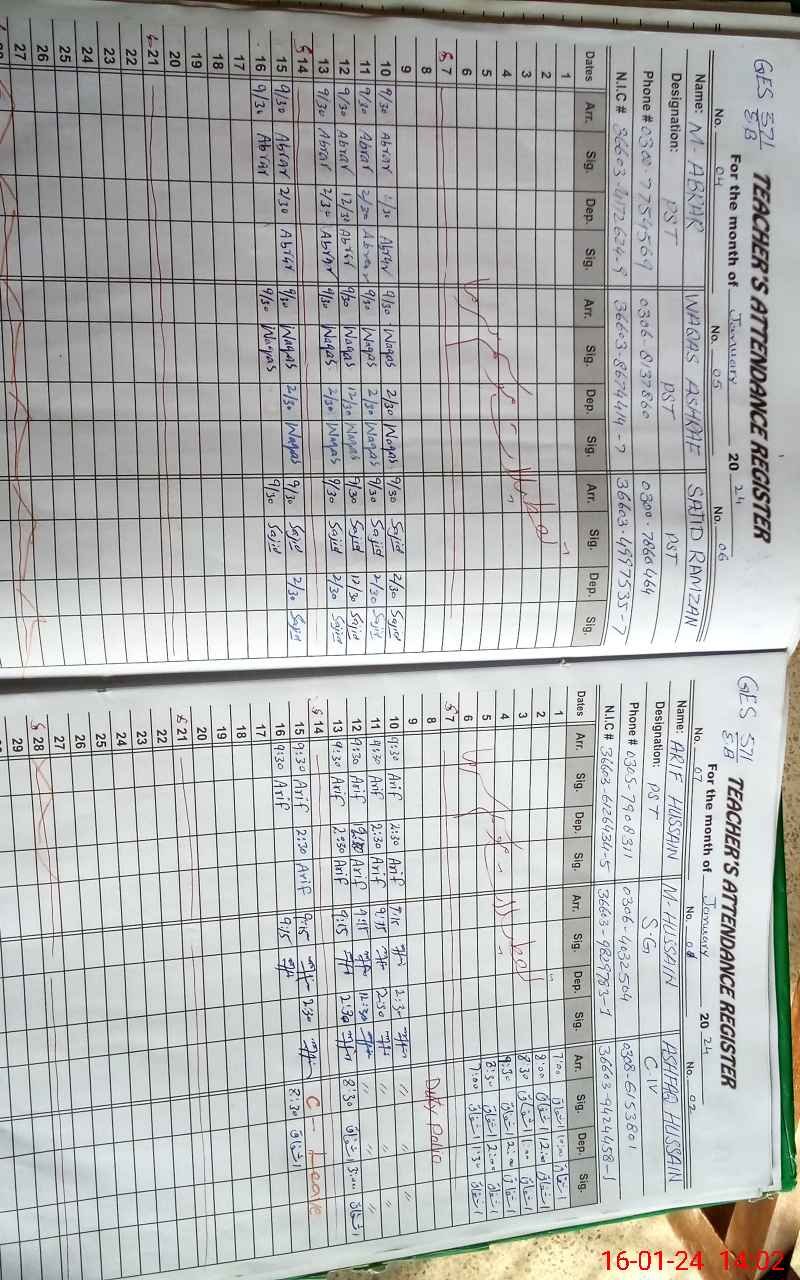 GES 571/EB TEACHER'S ATTENDANCE REGISTER
For the month of January 2024
No. 04 No. 05 No. 06
Name: M. ABRAR WAQAS ASHRAF SAJID RAMZAN
Designation: PST PST PST
Phone # 0300-7754569 0306-8137860 0300-7860464
N.I.C # 36603-4172624-9 36603-8674414-7 36603-4997535-7
Dates Arr. Sig. Dep. Sig. Arr. Sig. Dep. Sig. Arr. Sig. Dep. Sig.
1
2
3
4
5
6
7
8
9
10 9/30 Abrar Abrar 9/30 Waqas 2/30 Waqas 9/30 Sajid 2/30 Sajid
11 9/30 Abrar 2/30 Abrar 9/30 Waqas 2/30 Waqas 9/30 Sajid 2/30 Sajid
12 9/30 Abrar 12/30 Abrar 9/30 Waqas 12/30 Waqas 9/30 Sajid 12/30 Sajid
13 9/30 Abrar 2/30 Abrar 9/30 Waqas 2/30 Waqas 9/30 Sajid 2/30 Sajid
14
15 9/30 Abrar 2/30 Abrar 9/30 Waqas 2/30 Waqas 9/30 Sajid 2/30 Sajid
16 9/30 Abrar 9/30 Waqas 9/30 Sajid
17
18
19
20
21
22
23
24
25
26
27
GES 571/EB TEACHER'S ATTENDANCE REGISTER
For the month of January 2024
No. 07 No. 08 No. 02
Name: ARIF HUSSAIN M. HUSSAIN ASHFAQ HUSSAIN
Designation: PST S.G C.IV
Phone # 0305-7908311 0306-4032504 0308-6153801
N.I.C # 36603-6126434-5 36603-9829783-1 36603-9424458-1
Dates Arr. Sig. Dep. Sig. Arr. Sig. Dep. Sig. Arr. Sig. Dep. Sig.
1 7:00
2 8:00 2:00
3 8:30 1:00
4 9:30 2:00
5 8:30 2:00
6 7:00 1:30
7
8 Duty Polio
9
10 9:30 Arif 2:30 Arif 9:15 2:30 〃 〃
11 9:30 Arif 2:30 Arif 9:15 2:30 〃 〃 〃
12 9:30 Arif 12:30 Arif 9:15 12:30 〃 〃 〃
13 9:30 Arif 2:30 Arif 9:15 2:30 8:30 3:00
14 C - Leave
15 9:30 Arif 2:30 Arif 9:15 2:30 8:30
16 9:30 Arif 9:15
17
18
19
20
21
22
23
24
25
26
27
28
29
16-01-24 14:02